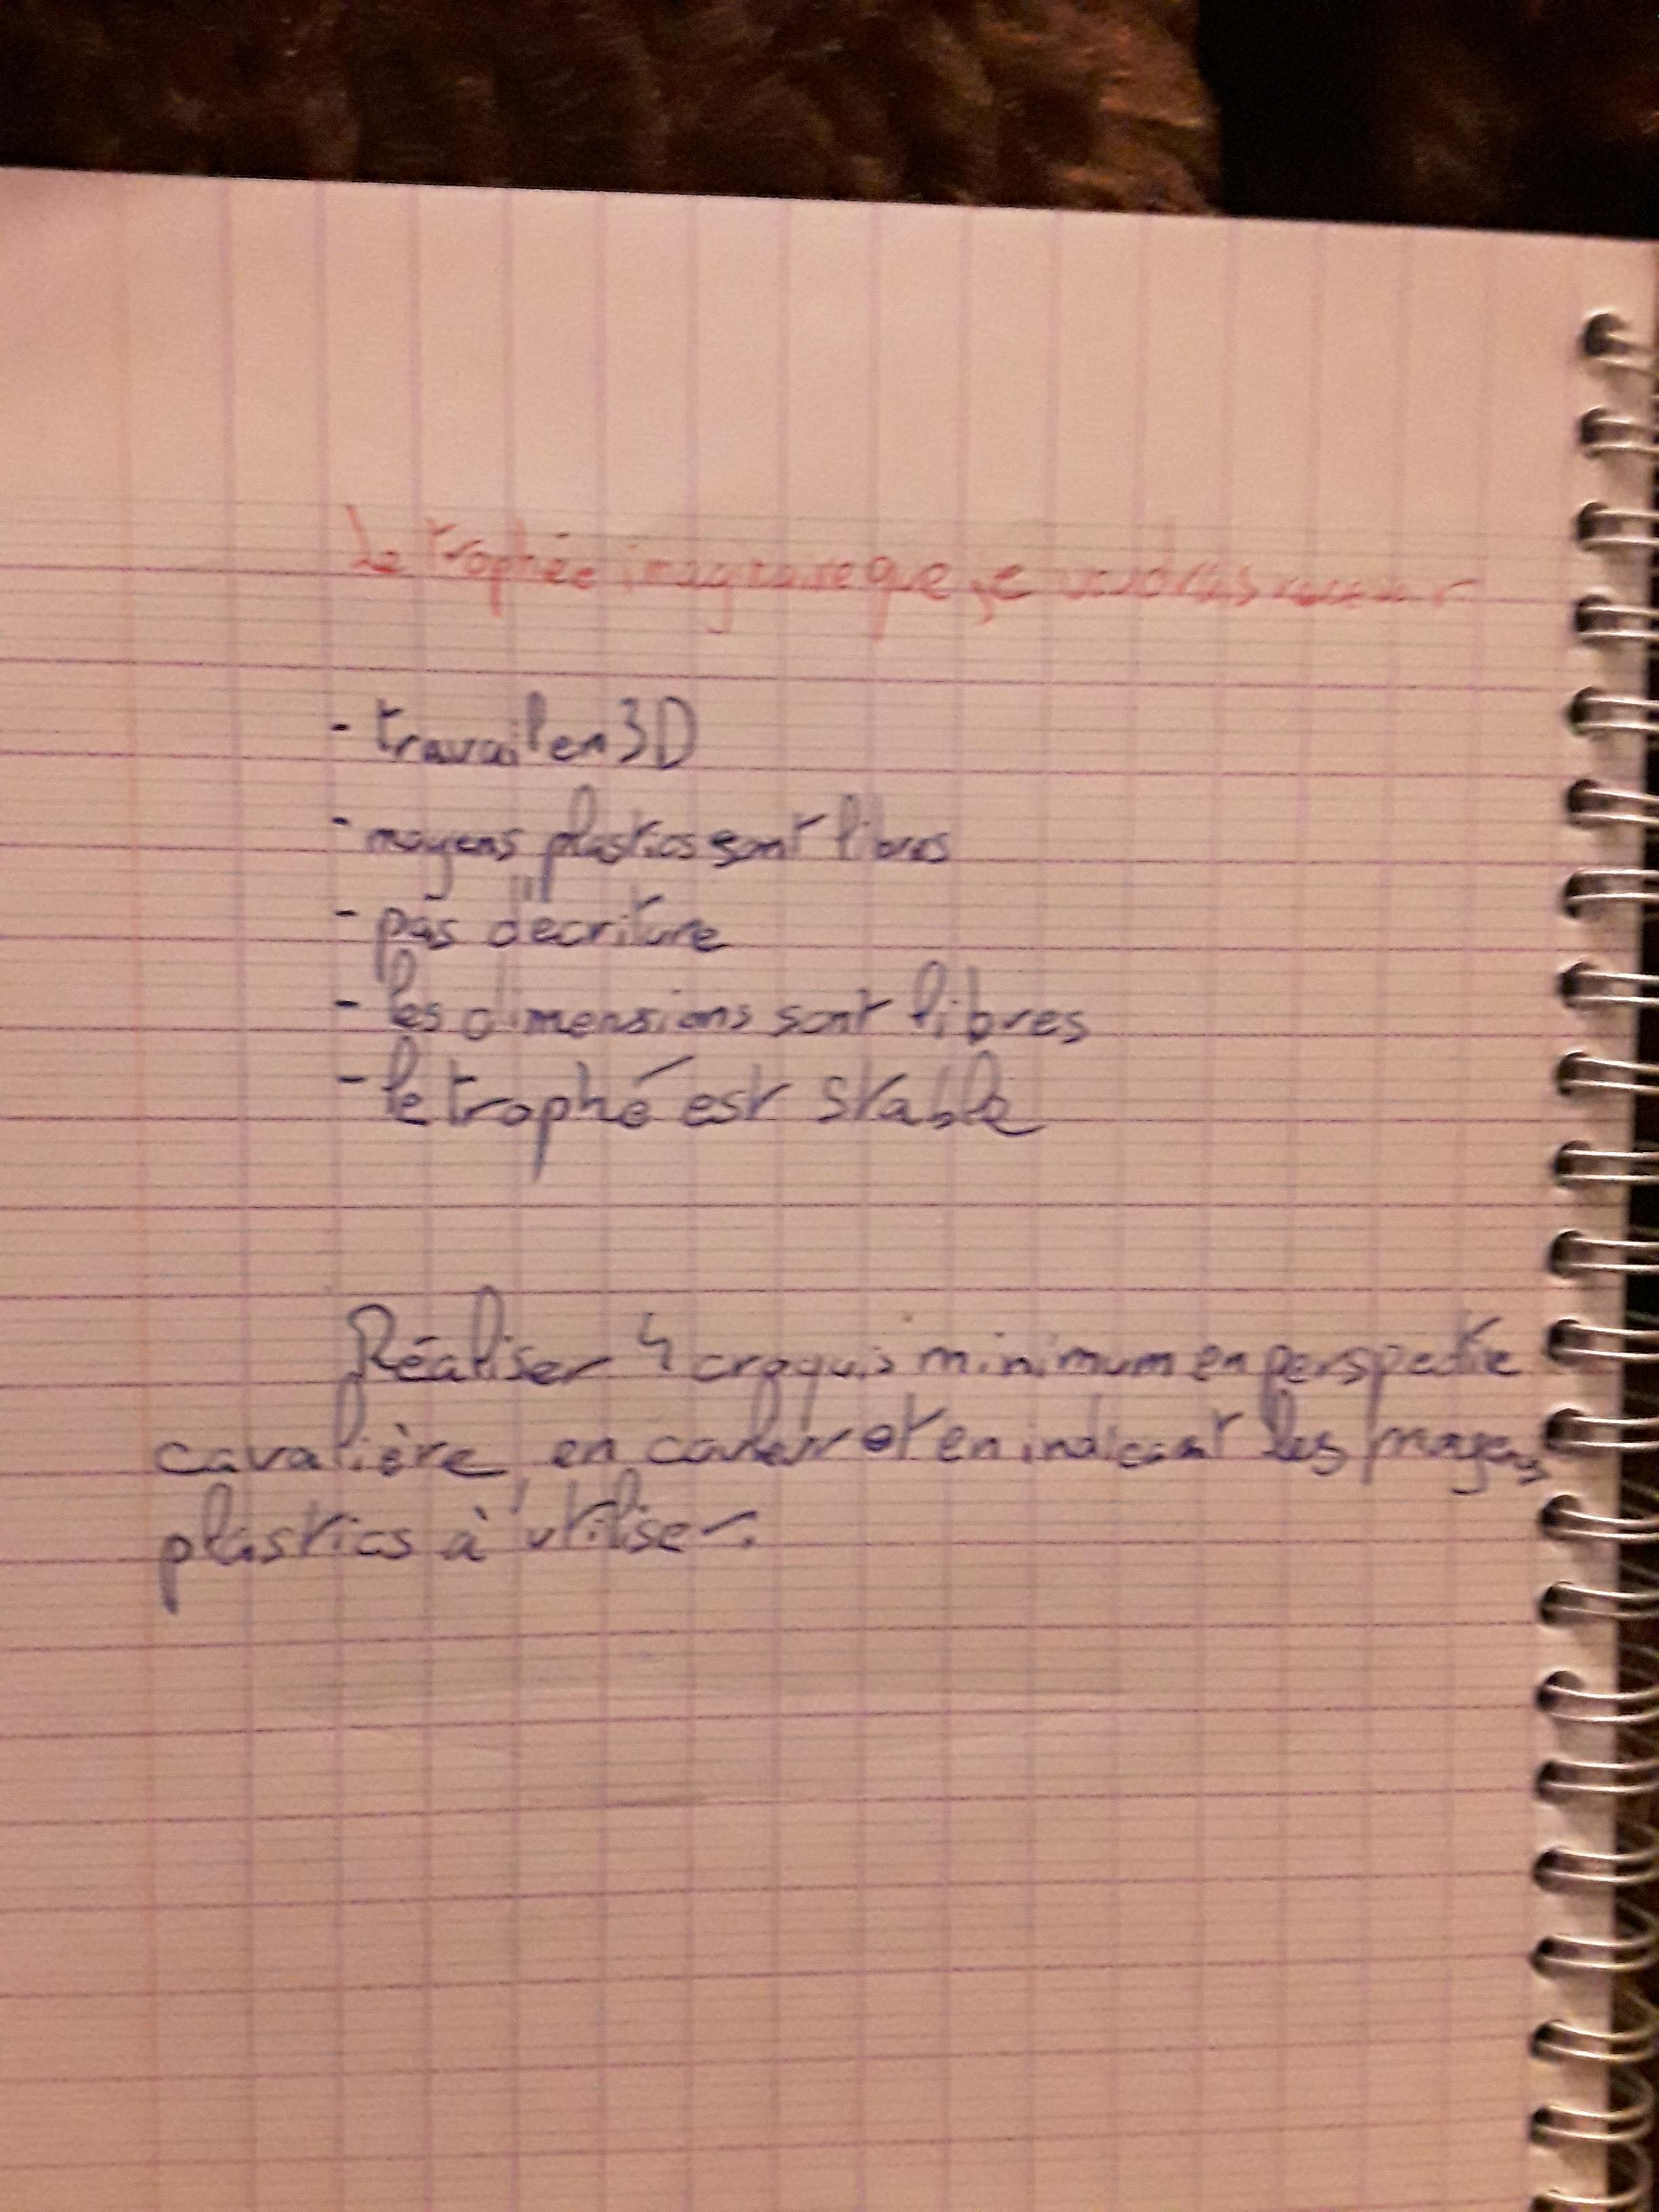 Le trophée imaginaire que je voudrais recevoir
- travail en 3D
- moyens plastics sont libres
- pas d'écriture
- les dimensions sont libres
- le trophé est stable
Réaliser 4 croquis minimum en perspective
cavalière, en couleur et en indiquant les moyens
plastics à utiliser.